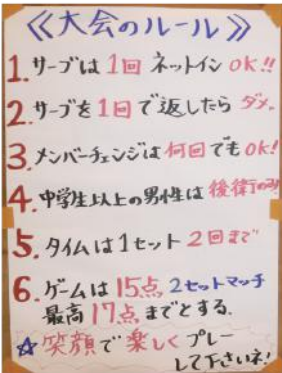 《大会のルール》
1.サーブは1回ネットインOK!!
2.サーブを1回で返したらダメ。
3.メンバーチェンジは何回でもOK!
4.中学生以上の男性は後衛のみ!
5.タイムは1セット2回まで
6.ゲームは15点2セットマッチ
最高17点までとする.
☆笑顔で楽しくプレー
して下さいネ!